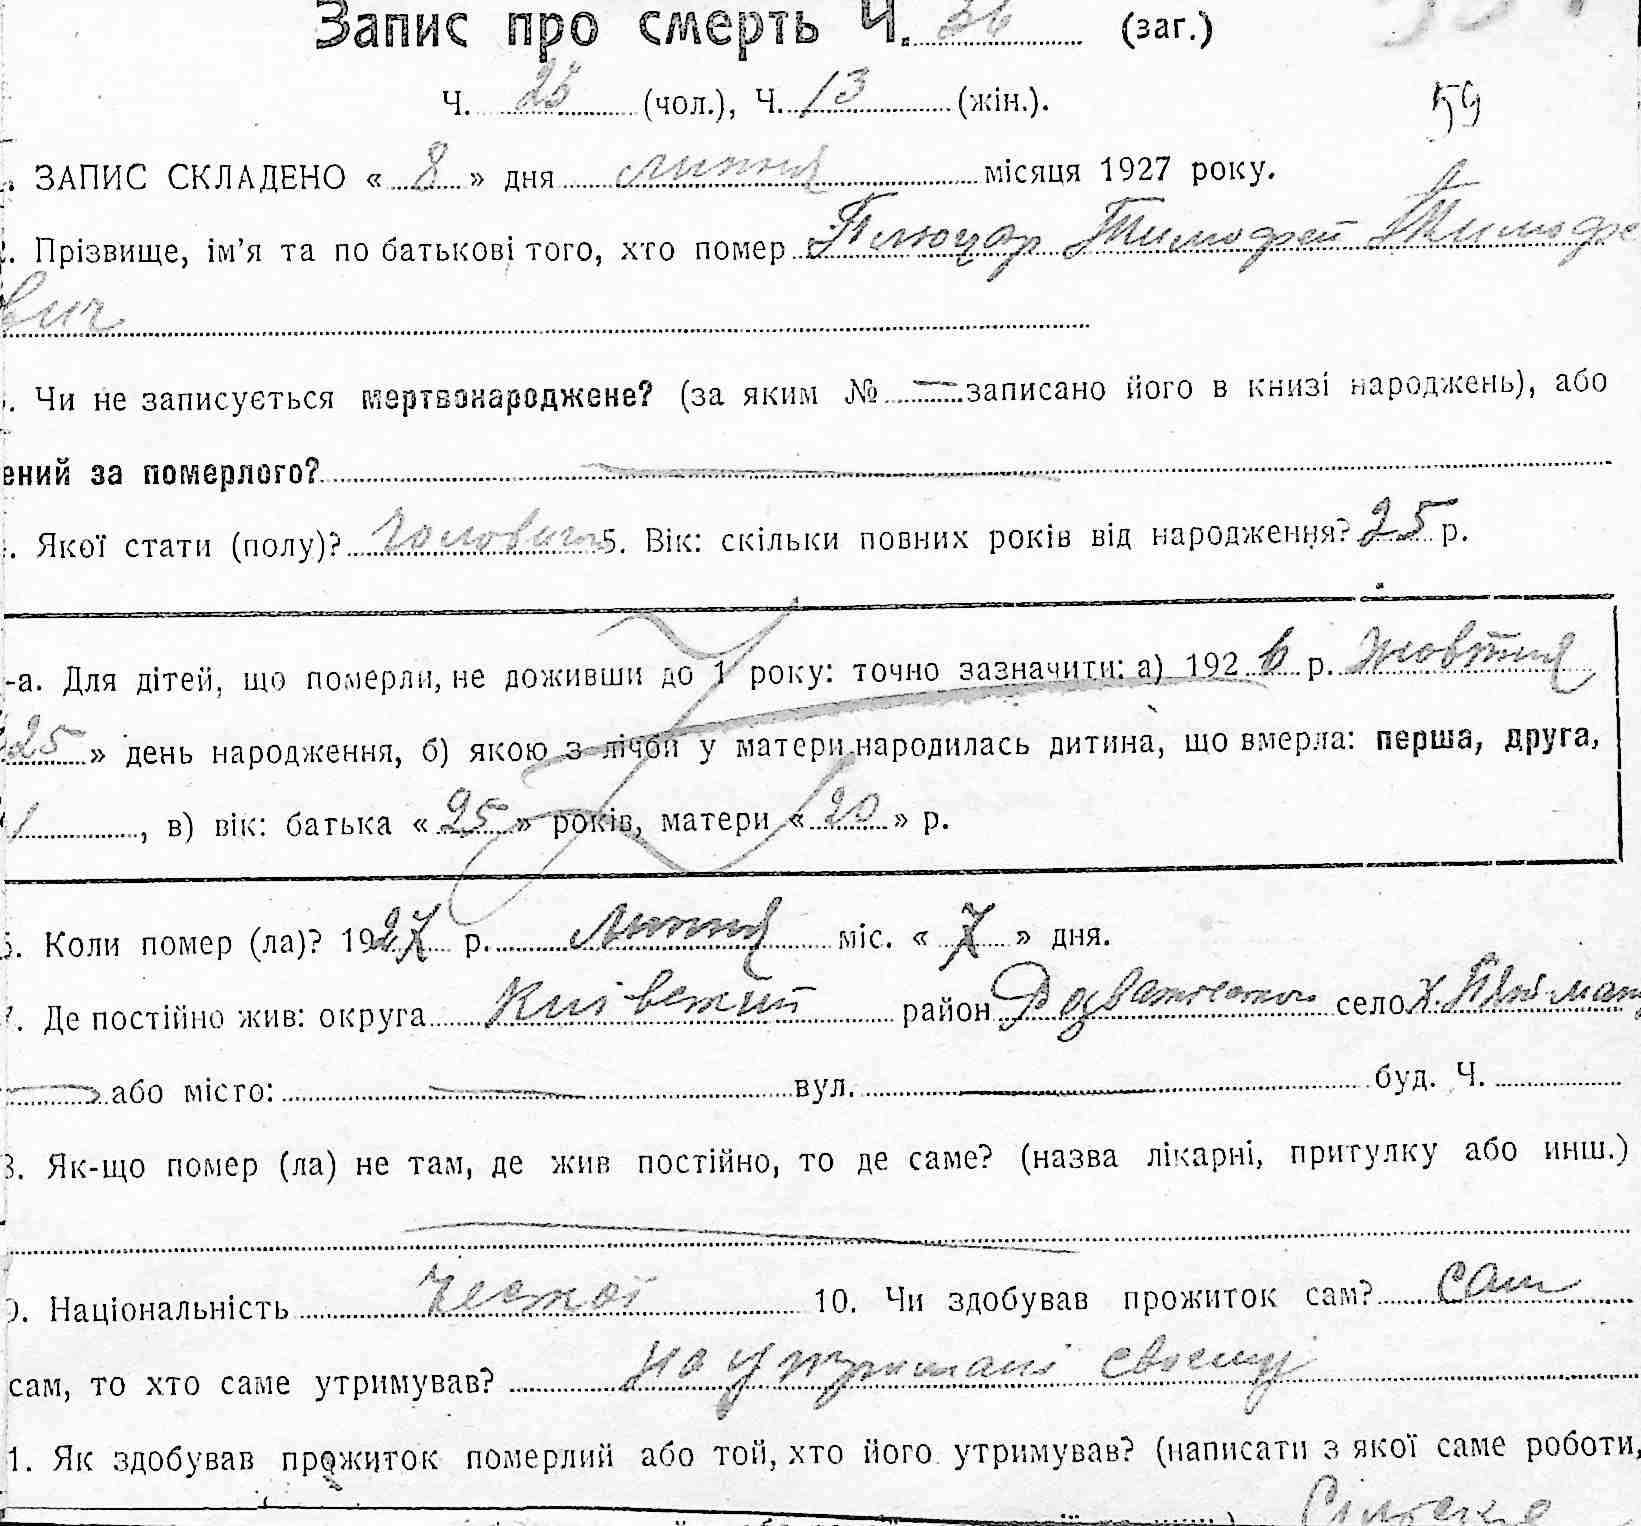 Запис про смерть Ч. 36 (заг.)
Ч. 23 (чол.), Ч. 13 (жін.).
59
ЗАПИС СКЛАДЕНО « 8 » дня липня місяця 1927 року.
2. Прізвище, ім'я та по батькові того, хто помер Тимофей Тимофе
вич
Чи не записується мертвонароджене? (за яким № — записано його в книзі народжень), або
ений за померлого? —
Якої стати (полу)? чоловіч 5. Вік: скільки повних років від народження? 25 р.
-а. Для дітей, що померли, не доживши до 1 року: точно зазначити: а) 1926 р. жовтня
25 » день народження, б) якою з лічби у матери народилась дитина, що вмерла: перша, друга,
1 , в) вік: батька « 25 » років, матери « 20 » р.
6. Коли помер (ла)? 1927 р. липня міс. « 7 » дня.
7. Де постійно жив: округа Київський район село х.
— або місто: — вул. — буд. Ч.
8. Як-що помер (ла) не там, де жив постійно, то де саме? (назва лікарні, притулку або инш.)
9. Національність Чеської 10. Чи здобував прожиток сам? сам
сам, то хто саме утримував? на утримані своему
1. Як здобував прожиток померлий або той, хто його утримував? (написати з якої саме роботи,